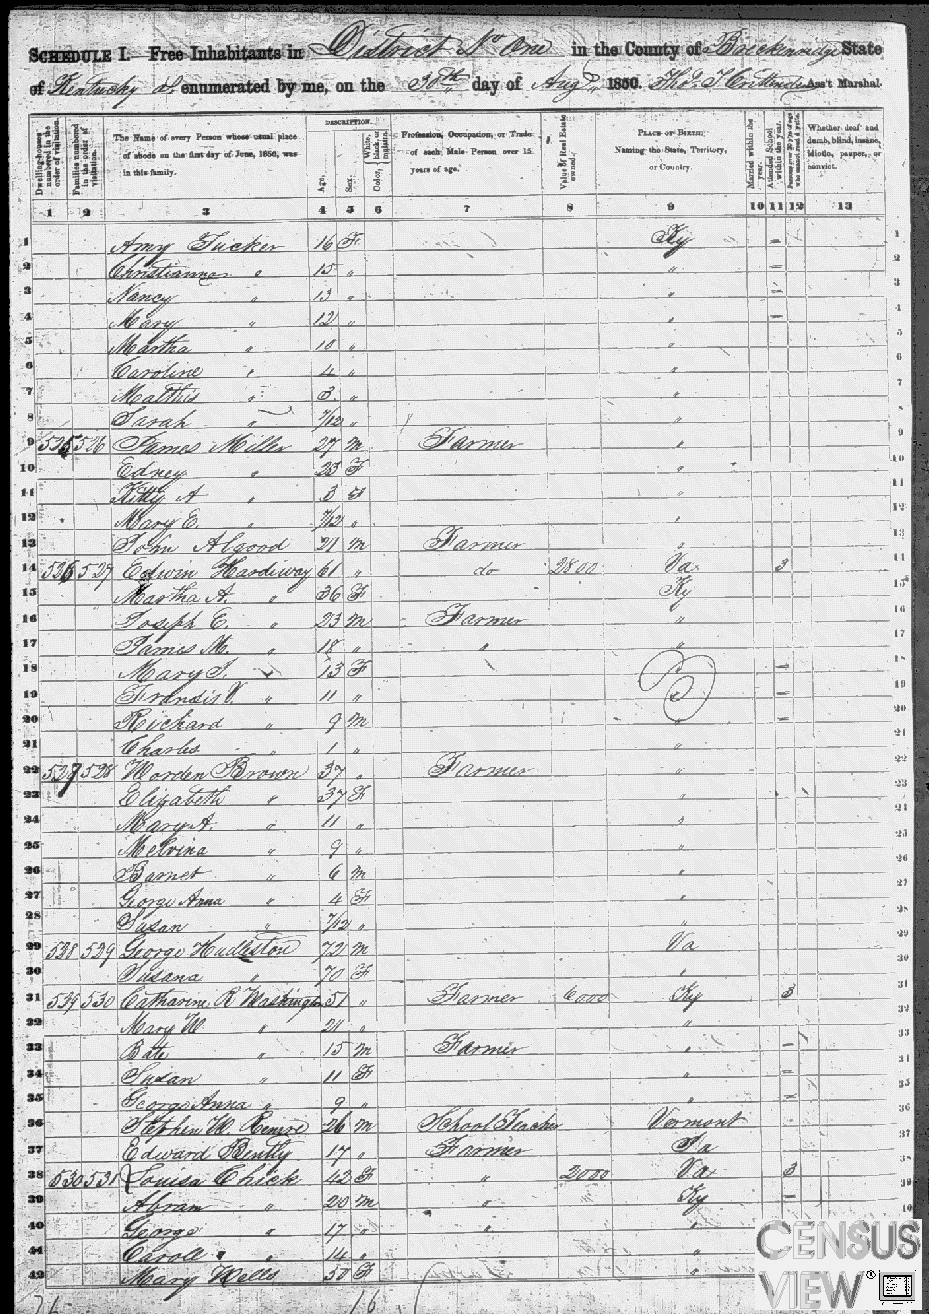 SCHEDULE I.—Free Inhabitants in District No One in the County of Breckenridge State
of Kentucky enumerated by me, on the 30th day of Aug 1850. Thos. J Crittenden Ass't Marshal.
Dwelling-houses numbered in the order of visitation.
Families numbered in the order of visitation.
The Name of every Person whose usual place of abode on the first day of June, 1850, was in this family.
DESCRIPTION.
Age.
Sex.
Color, White, black, or mulatto.
Profession, Occupation, or Trade of each Male Person over 15 years of age.
Value of Real Estate owned.
PLACE OF BIRTH, Naming the State, Territory, or Country.
Married within the year.
Attended School within the year.
Persons over 20 y'rs of age who cannot read & write.
Whether deaf and dumb, blind, insane, idiotic, pauper, or convict.
1 2 3 4 5 6 7 8 9 10 11 12 13
1 Amy Tucker 16 F Ky – 1
2 Christianna " 15 " " – 2
3 Nancy " 13 " " – 3
4 Mary " 12 " " – 4
5 Martha " 10 " " 5
6 Caroline " 4 " " 6
7 Mathis " 3 " " 7
8 Sarah " 7/12 " " 8
9 525 526 James Miller 27 M Farmer " 9
10 Edney " 23 F " 10
11 Kitty A " 3 F " 11
12 Mary E. " 7/12 " " 12
13 John Algood 21 M Farmer " 13
14 526 527 Edwin Hardiway 61 " do 2800 Va 3 14
15 Martha A. " 36 F Ky 15
16 Joseph E. " 23 M Farmer " 16
17 James M. " 18 " " " 17
18 Mary S. " 13 F " – 18
19 Francis V. " 11 " " – 19
20 Richard " 9 M " – 20
21 Charles " 1 " " 21
22 527 528 Worden Brown 37 " Farmer " 22
23 Elizabeth " 37 F " 23
24 Mary A. " 11 " " 24
25 Melvina " 9 " " 25
26 Barnet " 6 M " 26
27 George Anna " 4 F " 27
28 Susan " 7/12 " " 28
29 528 529 George Hudleston 72 M Va 29
30 Susana " 70 F " 30
31 529 530 Catharine R Washington 51 " Farmer 6000 Ky 3 31
32 Mary W. " 21 " " 32
33 Bate " 15 M Farmer " – 33
34 Susan " 11 F " – 34
35 George Anna " 9 " " – 35
36 Stephen W. 26 M School Teacher Vermont 36
37 Edward Bently 17 " Farmer 37
38 530 531 Louisa Chick 42 F " 2000 Va 3 38
39 Abram " 20 M " Ky – 39
40 George " 17 " " " 40
41 Caroll " 14 " "
42 Mary Wells 50 F "
16
CENSUS
VIEW®